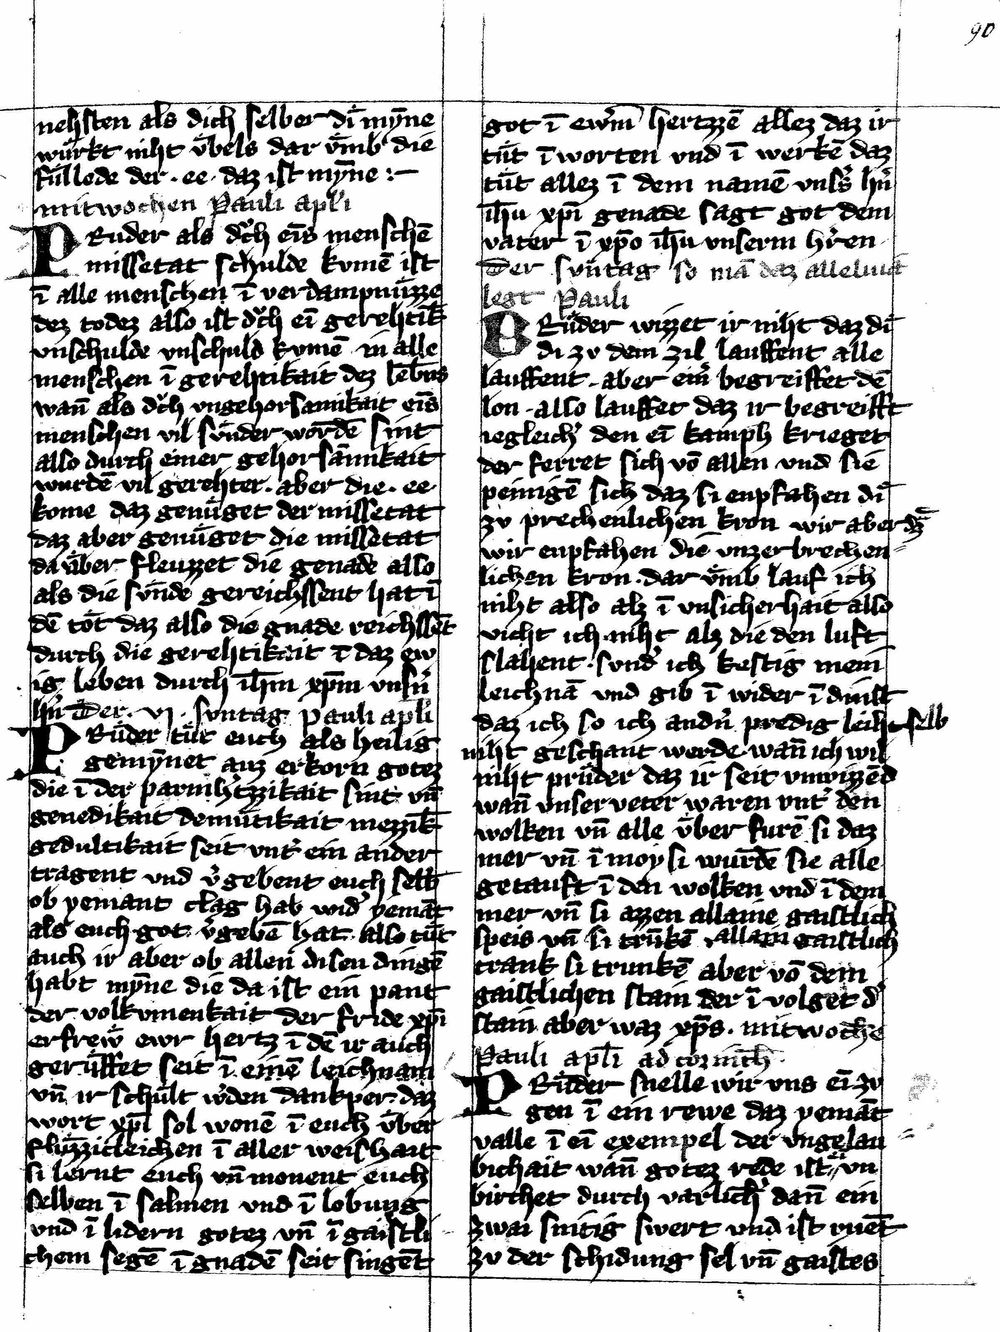 90
nehsten als dich selber di mẏne
wuͤrkt niht vͤbels dar vͤmb die
fuͤllede der · ee · daz ist mẏne :–
mitwochen Pauli apl̄i
PRuder als dͮch eīs menschē
missetat schulde kvmē ist
ī alle menschen ī verdampnuͤzze
dez todez also ist dͮch eī gerehtik̄
vnschulde vnschuld kvmē in alle
menschen ī gerehtikait dez lebn̄s
wan̄ als dͮch vngehorsamikait eīs
menschen vil svͤnder wordē sint
also durch einer gehorsāmikait
wurdē vil gerehter · aber die · ee
kome daz genuͤget der missetat
daz aber genuͤget die missetat
da vͤber fleuzzet die genade also
als die svͤnde gereichssent hat ī
dē tot daz also die gnade reichssēt
durch die gerehtikait ī daz ew
ig leben durch ih̄m xp̄m vnsn̄
hn̄ Der · vj · svntag Pauli apl̄i
PRuder tuͤt euch als heilig
gemẏnet auz erkorn gotez
die ī der parmhꝰtzzikait sint vn̄
genedikait demuͤtikait mezzik̄
gedultikait seit vntꝰ ein ander
tragent vnd vꝰgebent euch selb̄
ob yemant clag hab widꝰ yemāt
als euch got vꝰgebē hat also tuͤt
auch ir aber ob allen disen dingē
habt mẏne die da ist ein pant
der volkvmenkait der fride xp̄i
erfrewͤ ewr hertz ī dē ir auch
geruͤffet seit ī einē leichnam
vn̄ ir schuͤlt wꝰden dankper daz
wort xp̄i sol wonē ī euch vͤber
fluͤzzicleichen ī aller weishait
si lernt euch vn̄ monent euch
selben ī salmen vnd ī lobung
vnd ī lidern gotez vn̄ ī gaistli
chem segē ī gnadē seit singēt
got ī ewꝰm hertzzē allez daz ir
tuͤt ī worten vnd ī werkē daz
tuͤt allez ī dem namē vnsꝰs hn̄
ih̄u xp̄i genade sagt got dem
vater ī xp̄o ih̄u vnserm hꝰren
Der svntag so mā daz alleluia
legt Pauli
BRuͤder wizzet ir niht daz di
di zv dem zil lauffent alle
lauffent · aber einꝰ begreiffet dē
lon · also lauffet daz ir begreifft
iegleichꝰ den eī kamph krieget
der ferret sich vō allen vnd sie
peinigē sich daz si enpfahen di
zv prechenlichen kron wir aber daz
wir enpfahen die vnzerbrechen
lichen kron · dar vͤmb lauf ich
niht also alz ī vnsicherhait also
vicht ich niht alz die den luft
slahent · svndꝰ ich kestig mein
leichnā vnd gib ī wider ī dinst
daz ich so ich andn̄ predig leiht selb
niht geschant werde wan̄ ich wil
niht pruͤder daz ir seit vnwizzēd
wan̄ vnser veter waren vntꝰ den
wolken vn̄ alle vͤber furē si daz
mer vn̄ ī moysi wurdē sie alle
getauft ī den wolken vnd ī dem
mer vn̄ si azzen allaine gaistlich
speis vn̄ si trūkē allain gaistlich
trank si trunkē aber vō dem
gaistlichen stain der ī volget dꝰ
stain aber waz xp̄s · mitwoche
Pauli apl̄i ad corinth̄
PRuder snelle wir vns eī zv
gen ī ein rewe daz yemāt
valle ī eī exempel der vngelau
bichait wan̄ gotez rede ist vn
birchet durch varlichꝰ dan̄ ein
zwai snitig swert vnd ist ruͤet
zv der schidung sel vn̄ gaistes